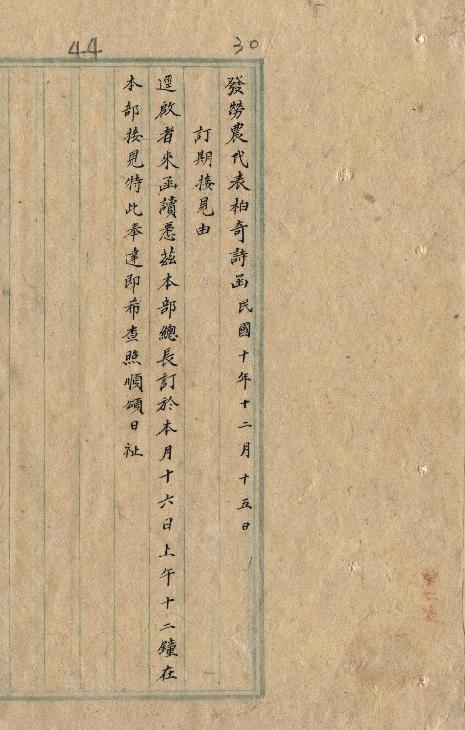 30
44
發勞農代表柏奇詩函 民國十年十二月十五日
訂期接見由
逕啟者來函讀悉茲本部總長訂於本月十六日上午十二鐘在
本部接見特此奉達即希查照順頌日祉